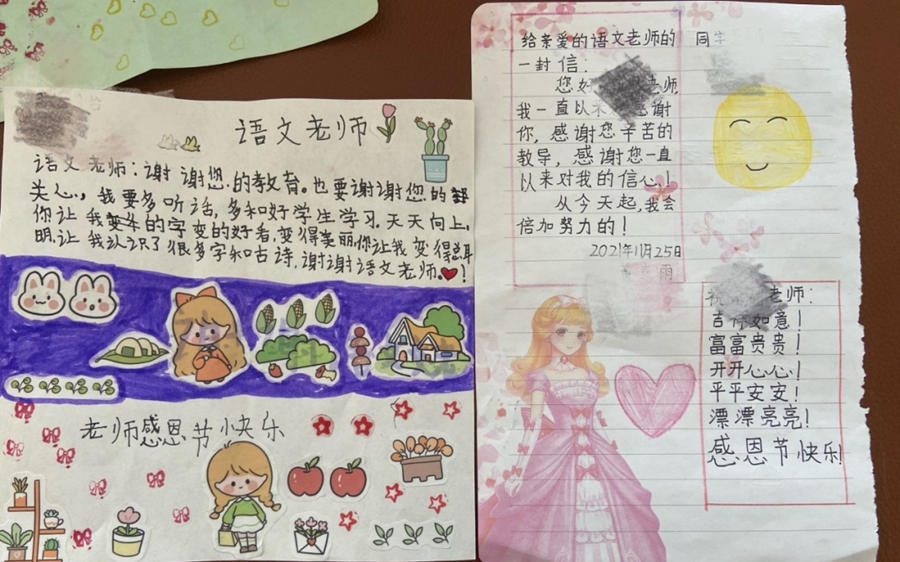 语文老师
语文老师:谢谢您的教育。也要谢谢您的
关心,我要多听话,多和好学生学习,天天向上。
你让我的字变的好看,变得美丽,你让我变得聪
明.让我认识了很多字和古诗,谢谢语文老师。!
老师感恩节快乐
给亲爱的语文老师的 同
一封信:
您好 老师
我一直以来 感谢
你,感谢您辛苦的
教导,感谢您一直
以来对我的信心!
从今天起,我会
倍加努力的!
2021年11月25日
雨
祝 老师:
吉祥如意!
富富贵贵!
开开心心!
平平安安!
漂漂亮亮!
感恩节快乐!